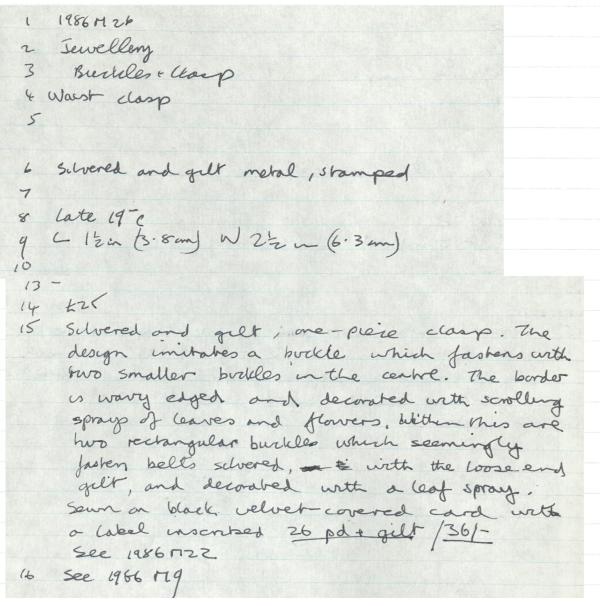 1 1986 M 26
2 Jewellery
3 Buckles + Clasp
4 Waist clasp
5
6 Silvered and gilt metal, stamped
7
8 Late 19th c
9 L 1½ in (3.8 cm) W 2½ in (6.3 cm)
10
13 -
14 £25
15 Silvered and gilt, one-piece clasp. The
design imitates a buckle which fastens with
two smaller buckles in the centre. The border
is wavy edged and decorated with scrolling
sprays of leaves and flowers. Within this are
two rectangular buckles which seemingly
fasten belts silvered, with the loose end
gilt, and decorated with a leaf spray.
Sewn on black velvet-covered card with
a label inscribed 26 pd + gilt /36/-
See 1986 M22
16 See 1986 M9